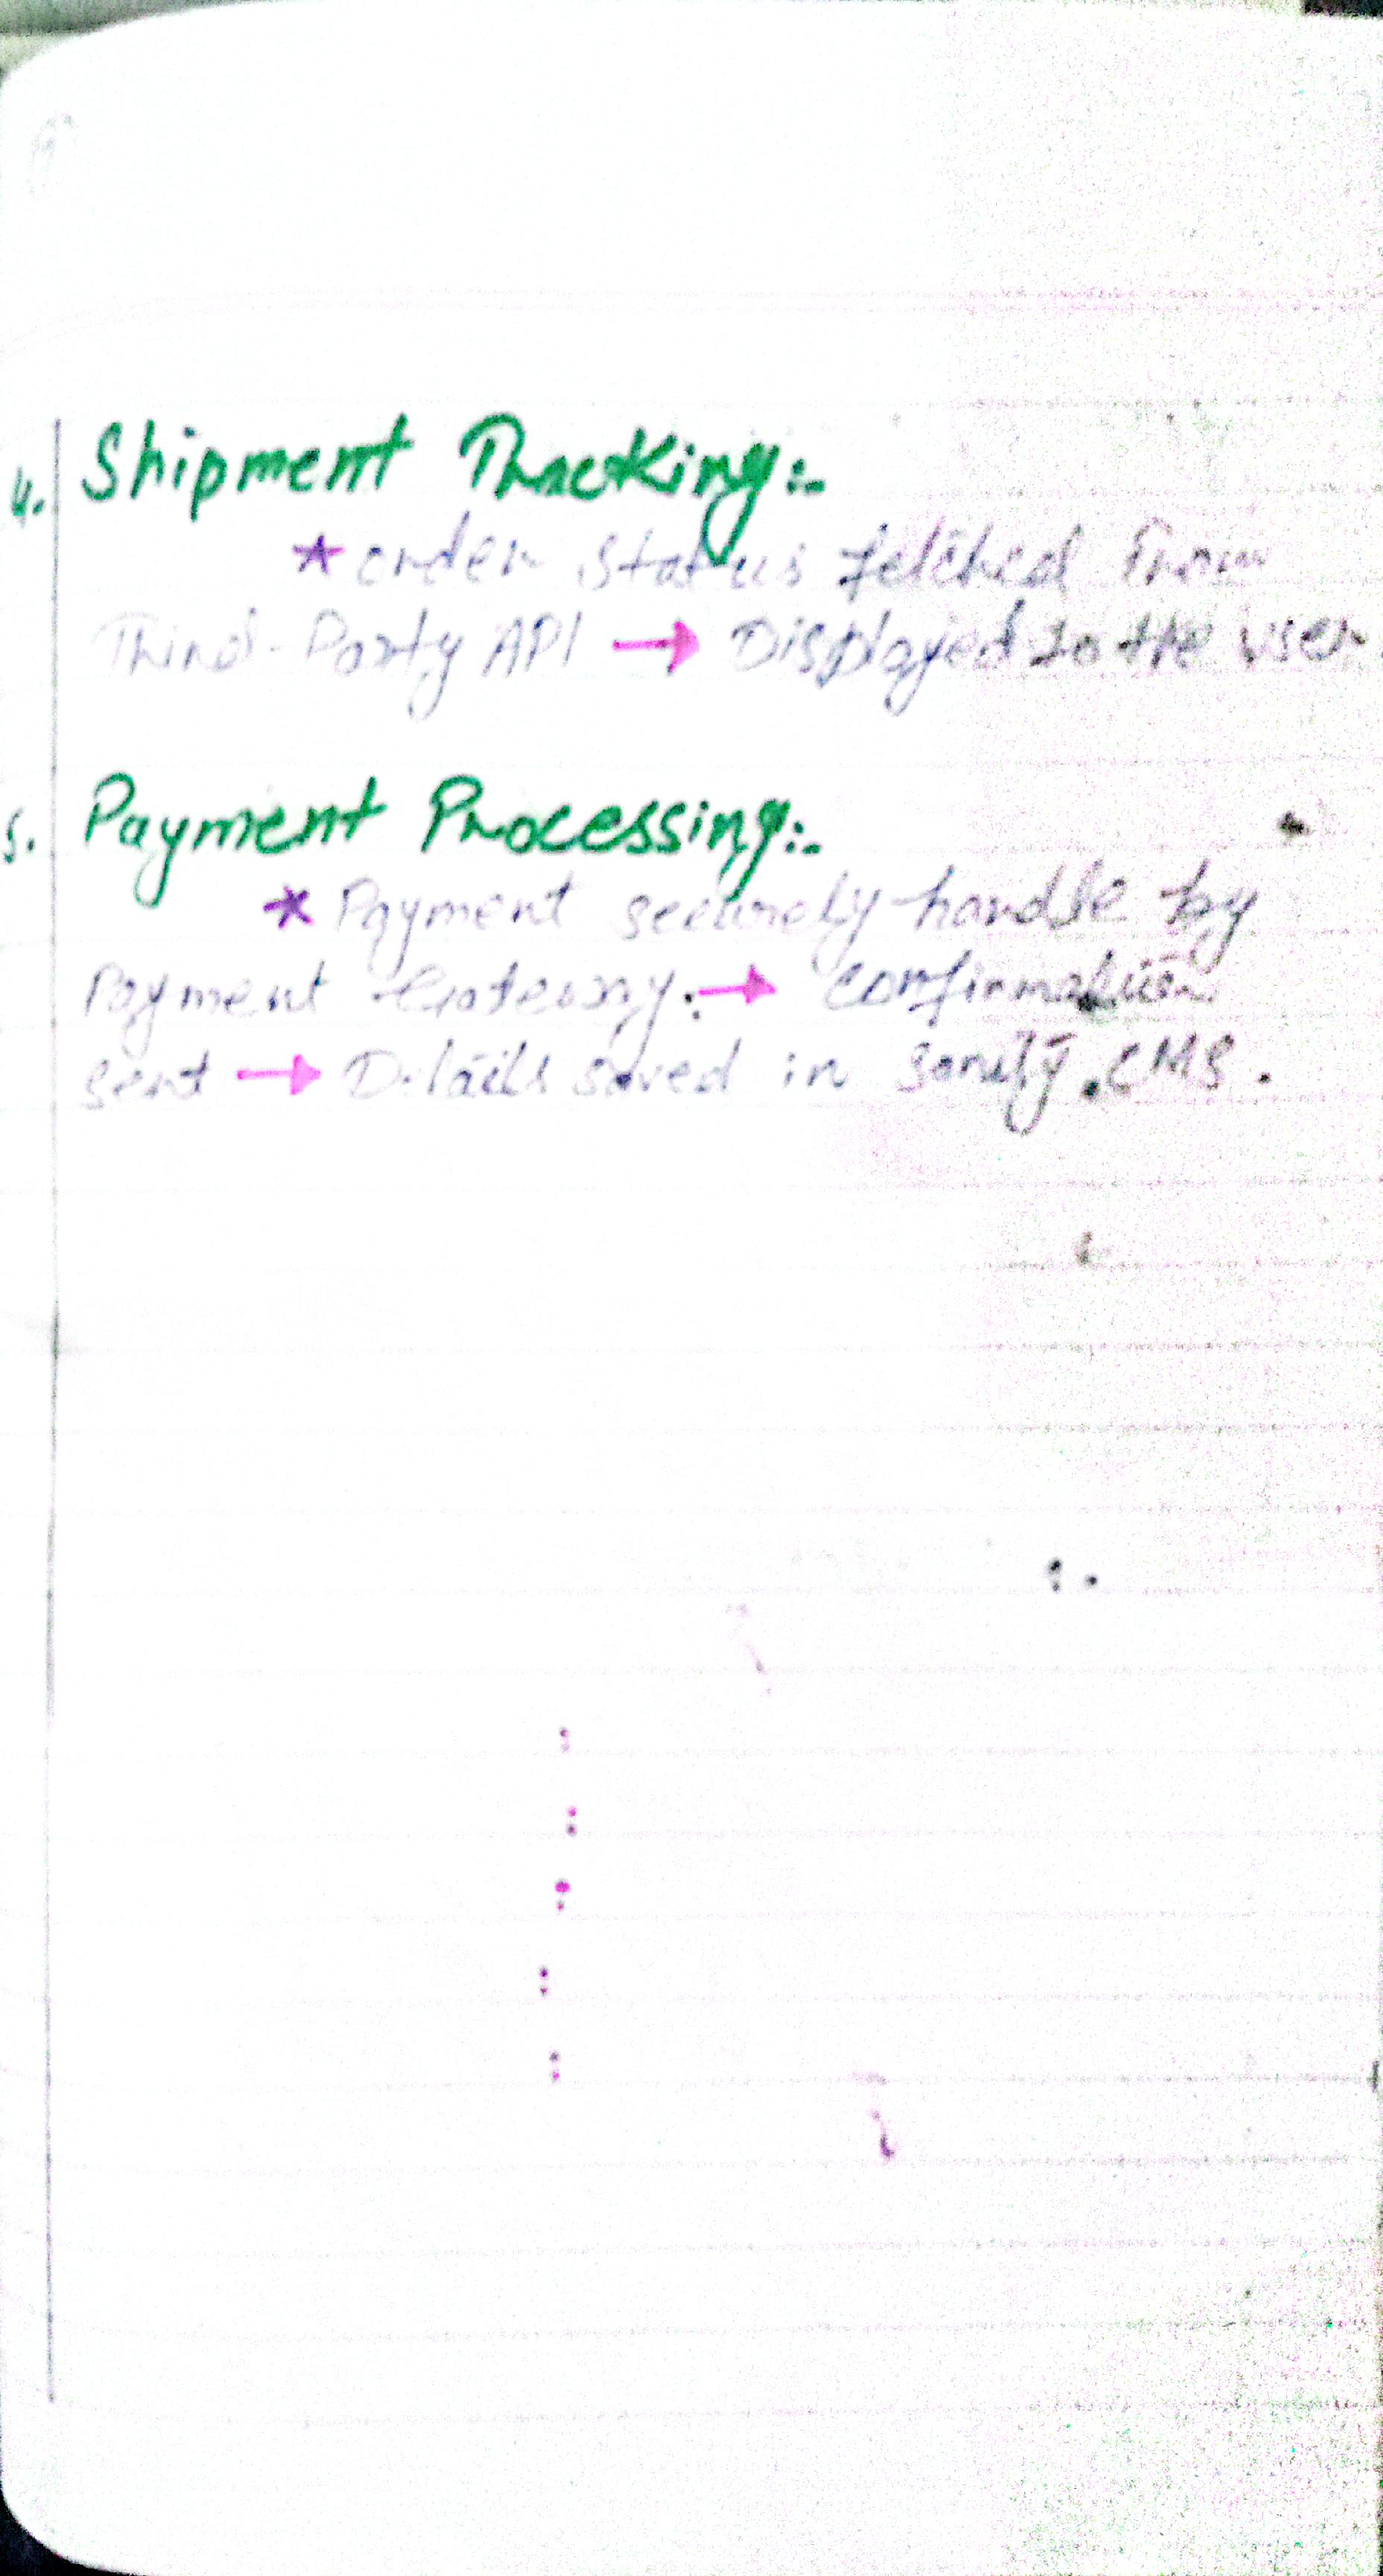 4. Shipment Tracking:-
* order status fetched from
Third-Party API → Displayed to the user.
5. Payment Processing:-
* Payment securely handle by
Payment Gateway. → confirmation
sent → Details saved in Sanity.CMS.